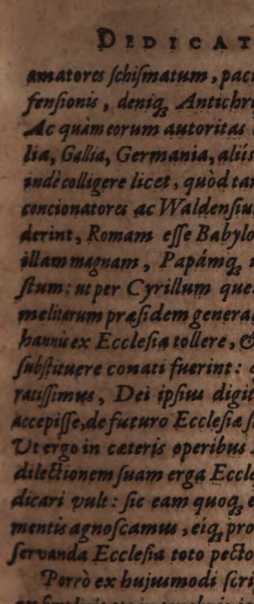 DEDICAT
amatores schismatum, paci
fensionis, deniq́; Antichri
Ac quàm eorum autoritas
lia, Gallia, Germania, aliis
indè colligere licet, quòd tan
concionatores ac Waldensiu
derint, Romam esse Babylo
illam magnam, Papámq́;
stum: ut per Cyrillum que
melitarum præsidem genera
hannis ex Ecclesia tollere, &
substituere conati fuerint:
ratissimus, Dei ipsius digit
accepisse, de futuro Ecclesiæ s
Ut ergo in cæteris operibus
dilectionem suam erga Eccle
dicari vult: sic eam quoq́; e
mentis agnoscamus, eiq́; pro
servanda Ecclesia toto pecto
Porrò ex hujusmodi scri